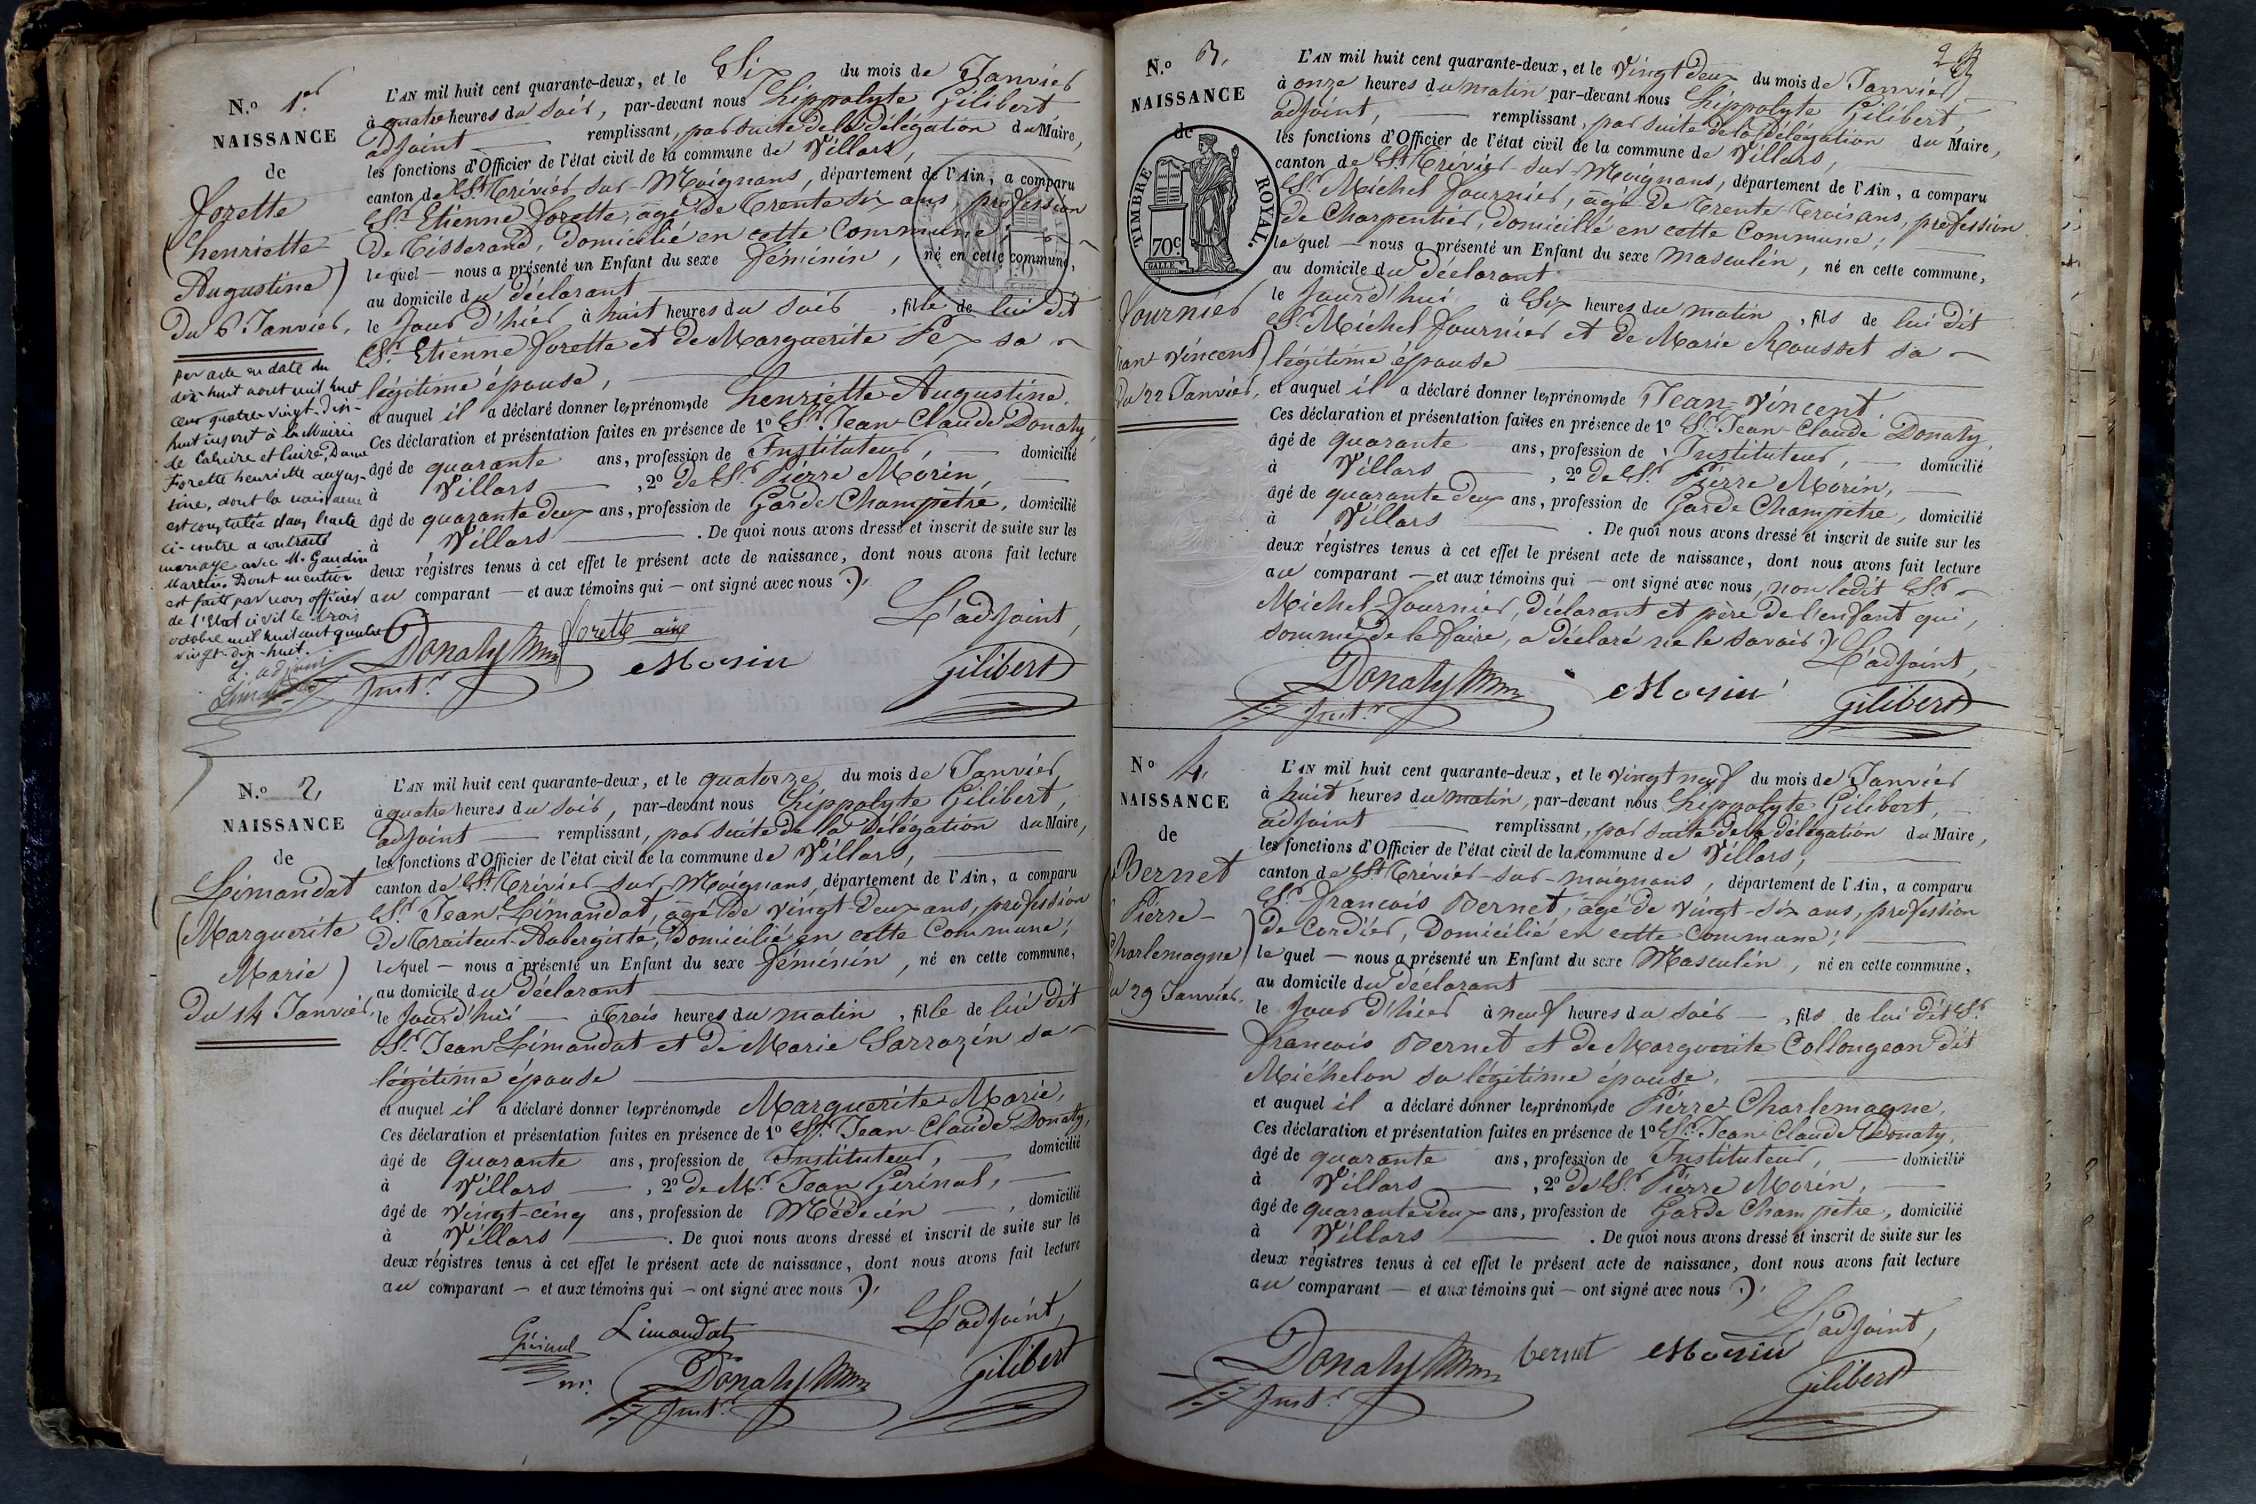 N.o 1.er
NAISSANCE
de
Forette
(henriette
Augustine)
Du 6 Janvier,
par acte en date du
dix-huit aout mil huit
cent quatre-vingt-dix-
huit inscrit à la Mairie
de Caluire et Cuire, Dame
Forette henriette augus-
tine, dont la naissance
est constatée dans l'acte
ci-contre a contracté
mariage avec M. Gaudin
Martin. Dont mention
est faite par nous officier
de l'Etat civil le trois
octobre mil huit cent quatre
vingt-dix-huit.
L'adjoint
L'AN mil huit cent quarante-deux, et le Six du mois de Janvier
à quatre heures du soir, par-devant nous hippolyte Gilibert,
adjoint remplissant, par suite de la délégation du Maire,
les fonctions d'Officier de l'état civil de la commune de Villars,
canton de St. Trivier-sur-Moignans, département de l'Ain, a comparu
Sr. Etienne Forette, âgé de trente six ans profession
de Tisserand, domicilié en cette Commune;
le quel — nous a présenté un Enfant du sexe féminin, né en cette commune,
au domicile du déclarant
le jour d'hier à huit heures du soir, fille de lui dit
Sr. Etienne Forette et de Marguerite Pex sa
légitime épouse,
et auquel il a déclaré donner les prénoms de henriette Augustine.
Ces déclaration et présentation faites en présence de 1o Sr. Jean-Claude Donaty,
âgé de quarante ans, profession de Instituteur, domicilié
à Villars, 2o de Sr. Pierre Morin,
âgé de quarante deux ans, profession de Garde Champêtre, domicilié
à Villars. De quoi nous avons dressé et inscrit de suite sur les
deux régistres tenus à cet effet le présent acte de naissance, dont nous avons fait lecture
au comparant — et aux témoins qui — ont signé avec nous ./.
L'adjoint,
Donaty forette aîné
Instr. Morin Gilibert
N.o 2,
NAISSANCE
de
Limandat
(Marguerite
Marie)
Du 14 Janvier,
L'AN mil huit cent quarante-deux, et le quatorze du mois de Janvier
à quatre heures du soir, par-devant nous hippolyte Gilibert,
adjoint remplissant, par suite de la délégation du Maire,
les fonctions d'Officier de l'état civil de la commune de Villars,
canton de St. Trivier-sur-Moignans, département de l'Ain, a comparu
Sr. Jean Limandat, âgé de vingt-deux ans, profession
de Traiteur-Aubergiste, domicilié en cette Commune;
lequel — nous a présenté un Enfant du sexe féminin, né en cette commune,
au domicile du déclarant
le jourd'hui à trois heures du matin, fille de lui dit
Sr. Jean Limandat et de Marie Sarrazin sa
légitime épouse
et auquel il a déclaré donner les prénoms de Marguerite Marie.
Ces déclaration et présentation faites en présence de 1o Sr. Jean-Claude Donaty,
âgé de quarante ans, profession de Instituteur, domicilié
à Villars, 2o de Mr. Jean Gérinal,
âgé de vingt-cinq ans, profession de Médecin, domicilié
à Villars. De quoi nous avons dressé et inscrit de suite sur les
deux régistres tenus à cet effet le présent acte de naissance, dont nous avons fait lecture
au comparant — et aux témoins qui — ont signé avec nous ./.
L'adjoint,
Gérinal Limandat
Donaty Gilibert
Instr.
2
N.o 3,
NAISSANCE
de
TIMBRE ROYAL.
70c.
Fournier
Jean-Vincent)
Du 22 Janvier,
L'AN mil huit cent quarante-deux, et le vingt deux du mois de Janvier
à onze heures du matin par-devant nous hippolyte Gilibert,
adjoint, remplissant, par suite de la délégation du Maire,
les fonctions d'Officier de l'état civil de la commune de Villars,
canton de St. Trivier-sur-Moignans, département de l'Ain, a comparu
Sr. Michel Fournier, âgé de trente trois ans, profession
de Charpentier, domicilié en cette Commune;
le quel — nous a présenté un Enfant du sexe masculin, né en cette commune,
au domicile du déclarant
le jourd'hui à Six heures du matin, fils de lui dit
Sr. Michel Fournier et de Marie Rousset sa
légitime épouse
et auquel il a déclaré donner les prénoms de Jean-Vincent.
Ces déclaration et présentation faites en présence de 1o Sr. Jean-Claude Donaty,
âgé de quarante ans, profession de Instituteur, domicilié
à Villars, 2o de Sr. Pierre Morin,
âgé de quarante deux ans, profession de Garde Champêtre, domicilié
à Villars. De quoi nous avons dressé et inscrit de suite sur les
deux régistres tenus à cet effet le présent acte de naissance, dont nous avons fait lecture
au comparant — et aux témoins qui — ont signé avec nous, non ledit Sr.
Michel Fournier, déclarant et père de l'enfant qui,
sommé de le faire, a déclaré ne le savoir ./.
L'adjoint,
Donaty Morin Gilibert
Instr.
No 4,
NAISSANCE
de
Bernet
Pierre-
Charlemagne)
du 29 Janvier,
L'AN mil huit cent quarante-deux, et le vingt neuf du mois de Janvier
à huit heures du matin, par-devant nous hippolyte Gilibert,
adjoint remplissant, par suite de la délégation du Maire,
les fonctions d'Officier de l'état civil de la commune de Villars,
canton de St. Trivier-sur-moignans, département de l'Ain, a comparu
Sr. françois Bernet, âgé de vingt-six ans, profession
de Cordier, domicilié en cette commune;
le quel — nous a présenté un Enfant du sexe Masculin, né en cette commune,
au domicile du déclarant
le jour d'hier à neuf heures du soir —, fils de lui dit Sr.
françois Bernet et de Marguerite Collongeon dit
Michelon sa légitime épouse.
et auquel il a déclaré donner les prénoms de Pierre Charlemagne.
Ces déclaration et présentation faites en présence de 1o Sr. Jean-Claude Donaty,
âgé de quarante ans, profession de Instituteur, domicilié
à Villars, 2o de Sr. Pierre Morin,
âgé de quarante deux ans, profession de Garde Champêtre, domicilié
à Villars. De quoi nous avons dressé et inscrit de suite sur les
deux régistres tenus à cet effet le présent acte de naissance, dont nous avons fait lecture
au comparant — et aux témoins qui — ont signé avec nous ./.
L'adjoint,
Donaty bernet Morin
Instr. Gilibert